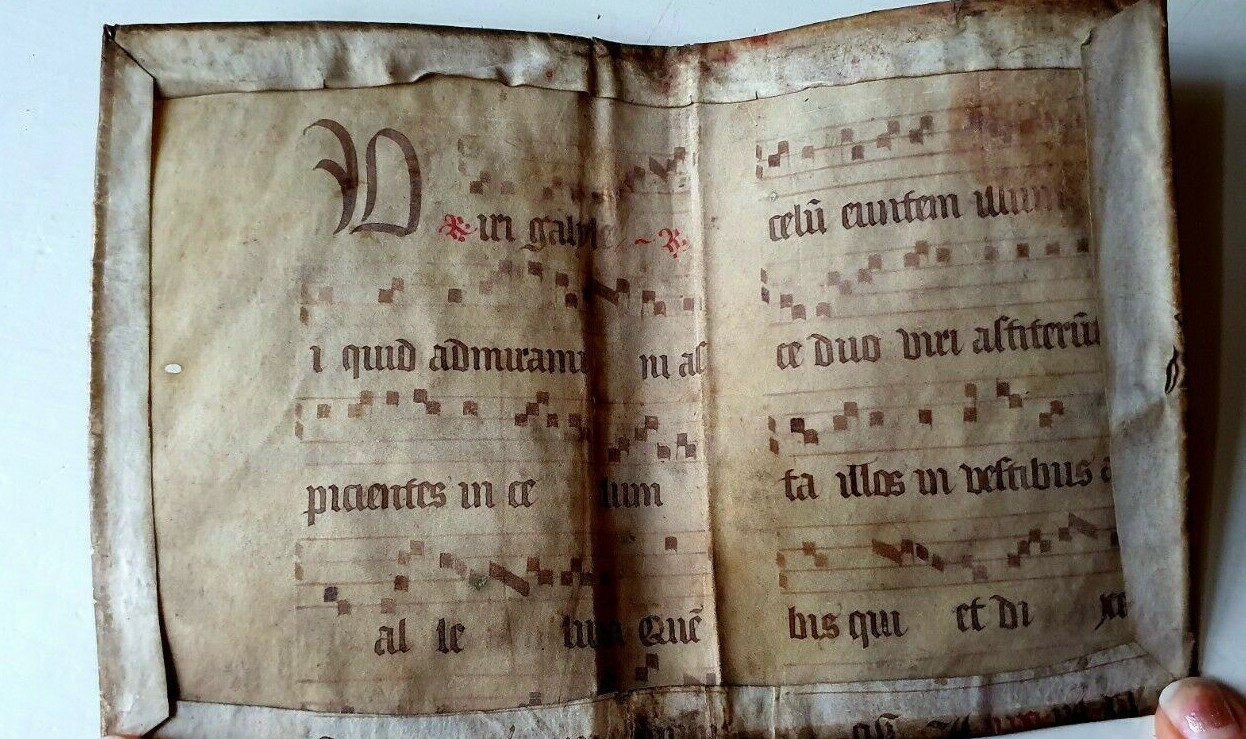 Viri galile
i quid admirami ni as
picientes in ce lum
al le Quē
celū euntem illum
ce duo viri astiterū
ta illos in vestibus a
bis qui et di xe